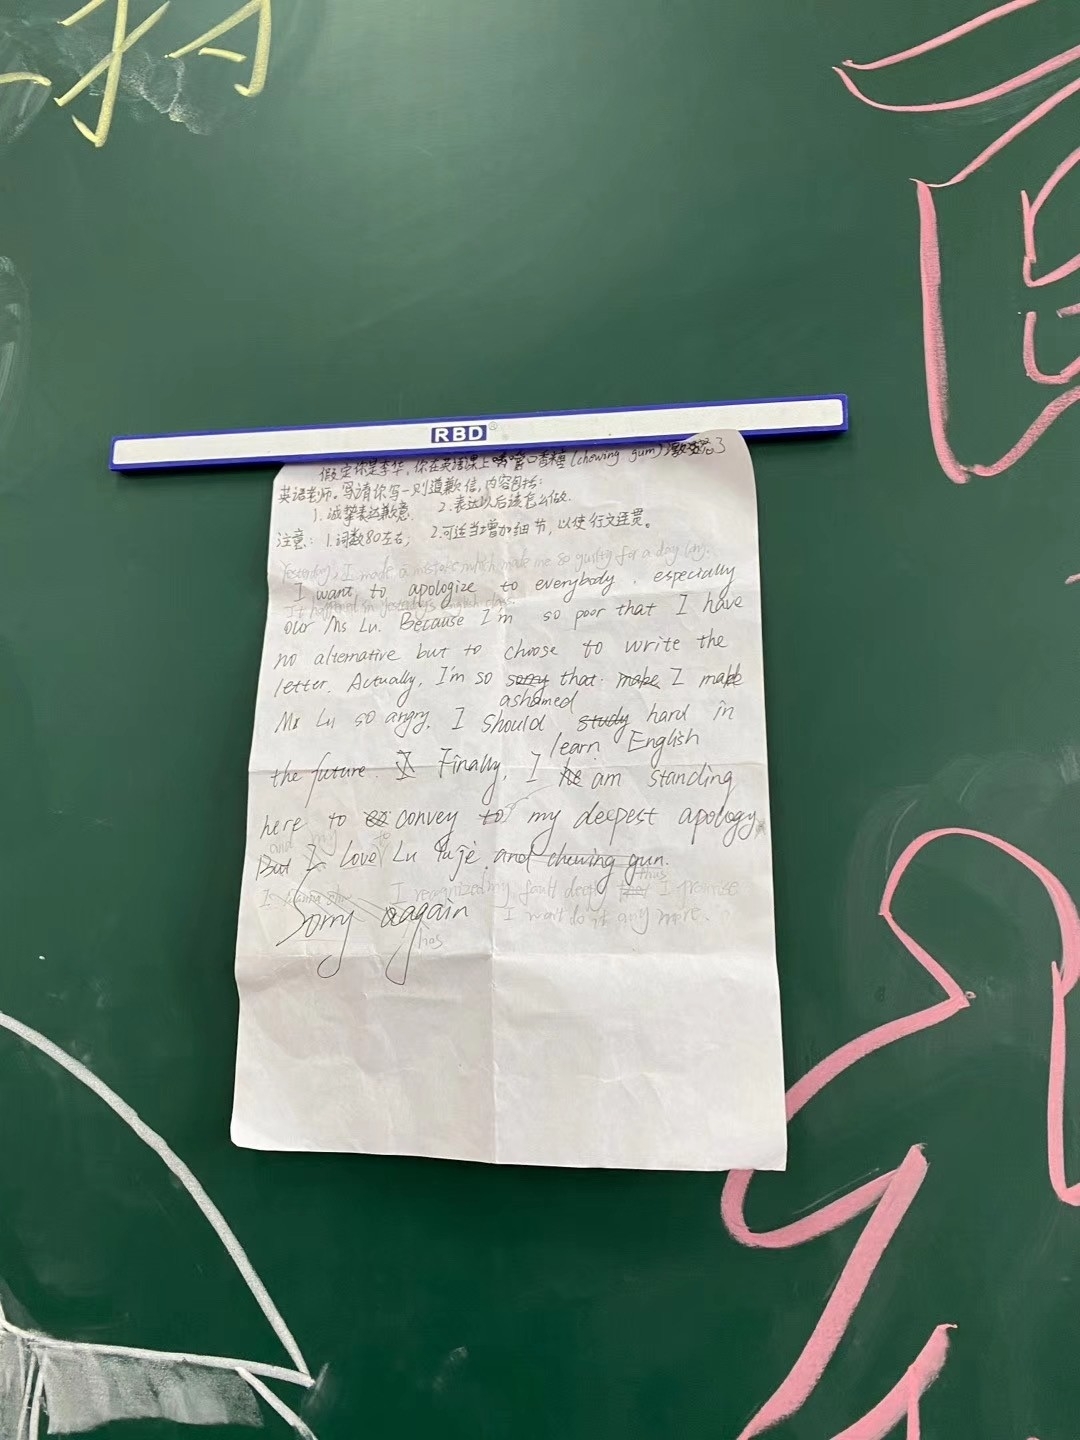 RBD
假定你是李华,你在英语课上嚼口香糖(chowing gum)激怒了
英语老师。请你写一则道歉信,内容包括:
1. 诚挚表达歉意 2. 表达以后该怎么做.
注意: 1.词数80左右; 2.可适当增加细节,以使行文连贯。
Yesterday, I made a mistake which make me so guilty for a day long.
I want to apologize to everybody, especially
It happened in yesterday's English class.
our Ms Lu. Because I'm so poor that I have
no alternative but to choose to write the
letter. Actually, I'm so sorry that make I make
ashamed
Ms Lu so angry. I should study hard in
learn English
the future. I Finally, I he am standing
here to convey to my deepest apology.
and my to
But I Love Lu Yajè and chewing gun.
thus
I I recognized my fault deeply that I promise
Sorry again I won't do it any more.
has